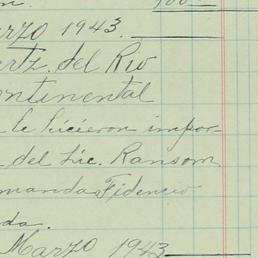 on. 900.00
arzo 1943.
artz. del Rio
ontinental
le hicieron impor-
del Lic. Ransom
manda Fidencio
da.
Marzo 1943